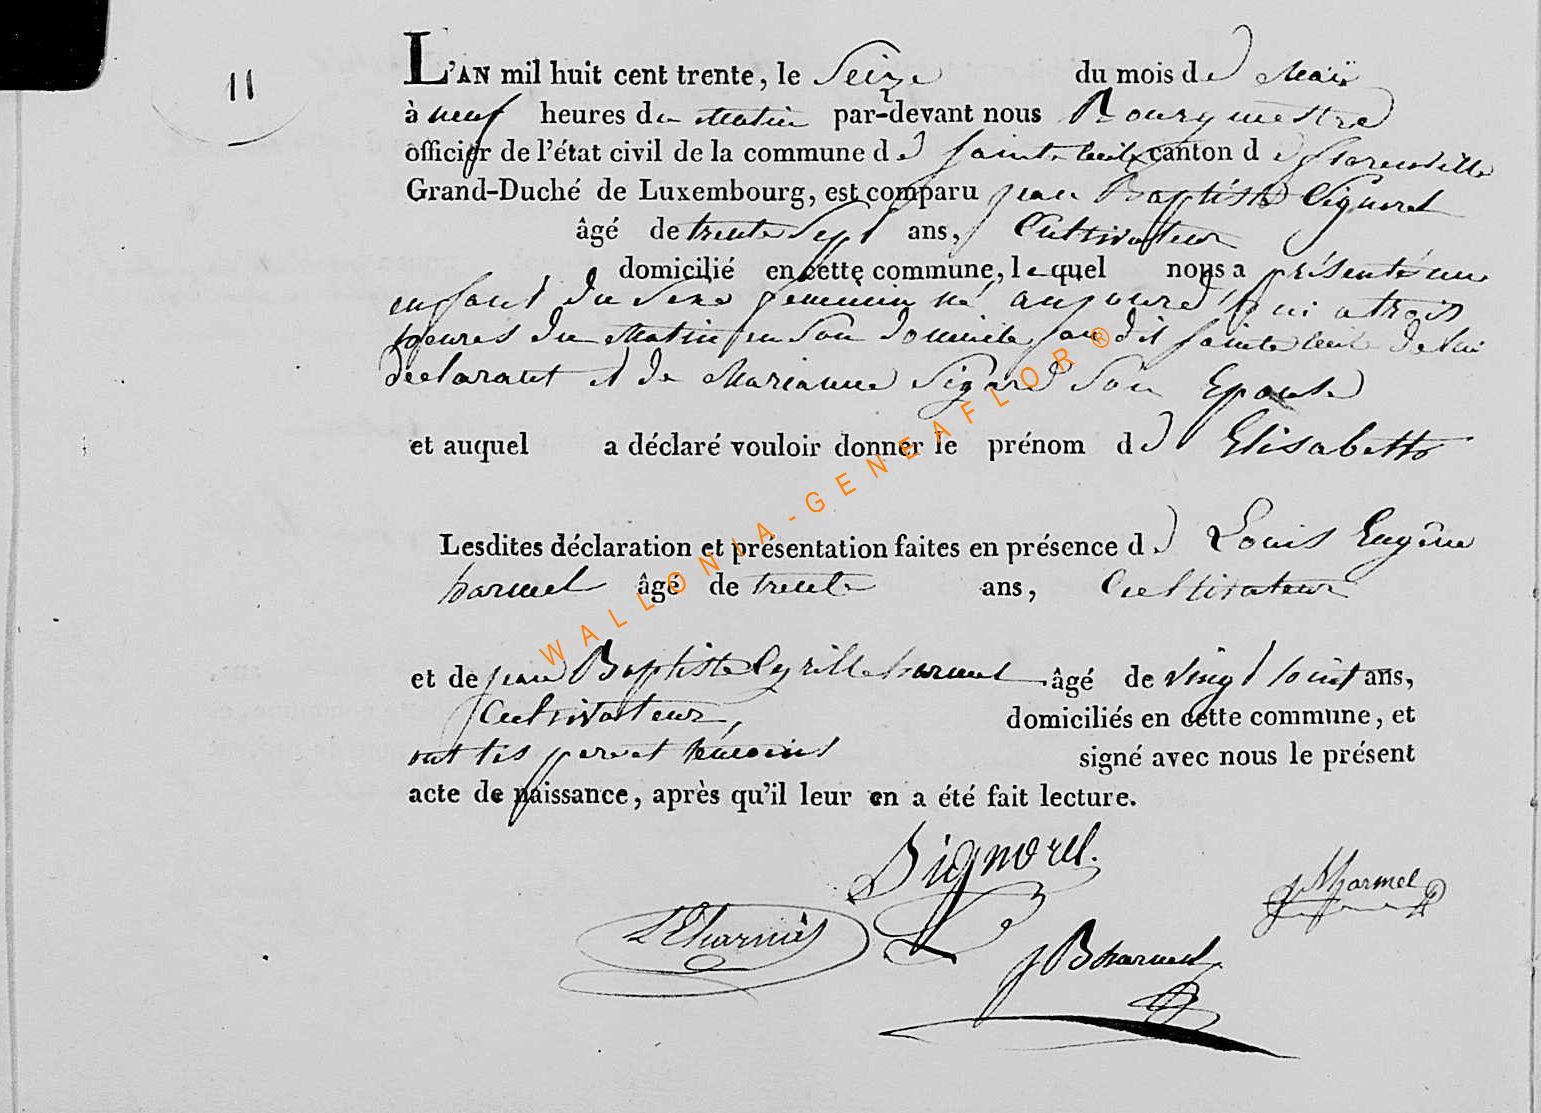 11
L'AN mil huit cent trente, le Seize du mois de Maï
à neuf heures du Matin par-devant nous Bourgmestre
officier de l'état civil de la commune de Sainte Cecile canton de florenville
Grand-Duché de Luxembourg, est comparu jean Baptiste Signorel
âgé de trente Sept ans, Cultivateur
domicilié en cette commune, lequel nous a présenté un
enfant du Sexe feminin né aujourd'hui a trois
heures du Matin en Son domicile au dit Sainte Cecile de lui
declarant et de Marianne Sigard Son Epouse
et auquel a déclaré vouloir donner le prénom de Elisabette
Lesdites déclaration et présentation faites en présence de Louis Eugêne
harmel âgé de trente ans, Cultivateur
et de jean Baptiste Cyrille harmel âgé de vingt huit ans,
Cultivateur, domiciliés en cette commune, et
ont les pere et témoins signé avec nous le présent
acte de naissance, après qu'il leur en a été fait lecture.
Signorel.
harmel
L E harmel
J B harmel
WALLONIA-GENEAFLOR®